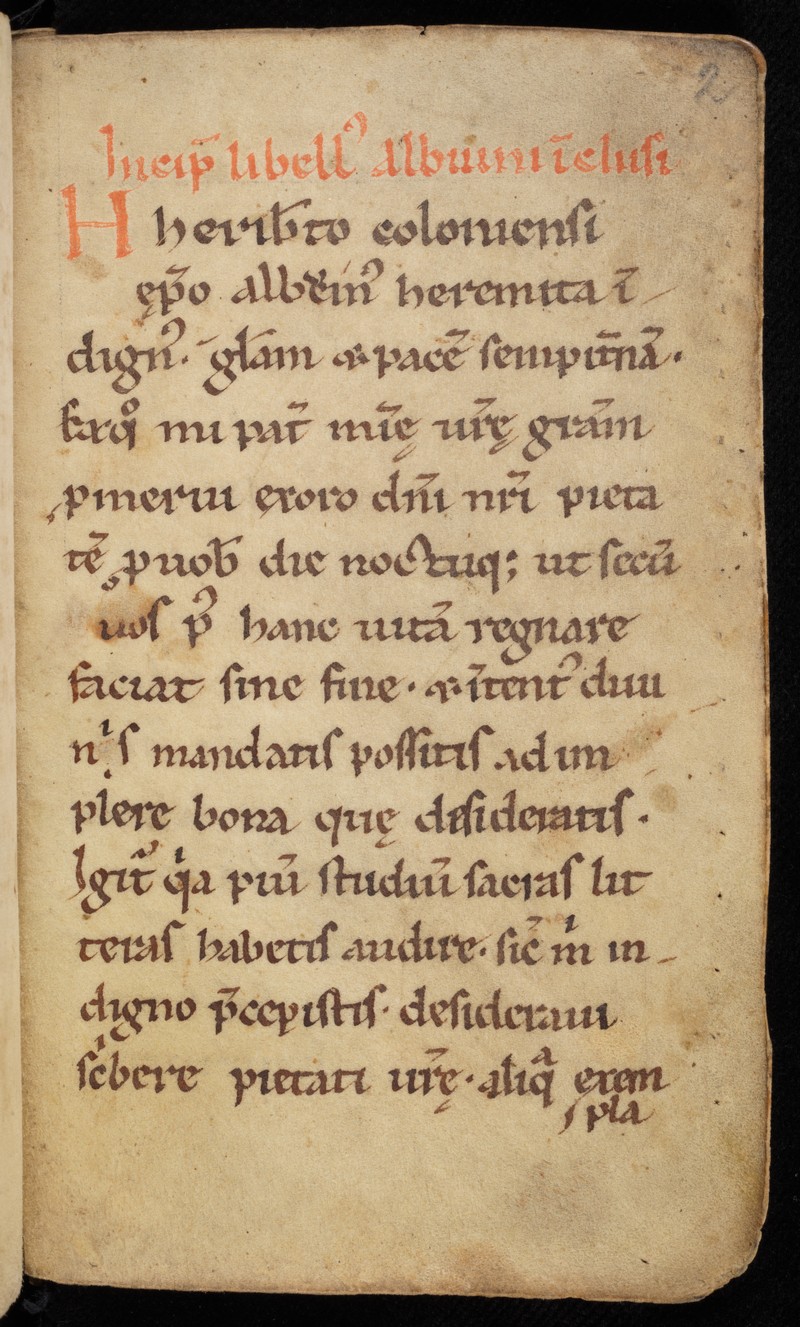 2
Incip̄ libellꝰ albuini īclusi
H heriƀto coloniensi
ęp̄o albuinꝰ heremita ī
dignꝰ. gl̄am & pacē sempit̄nā.
Ex quo mi pat̄ mūę ur̄ę grām
ꝓmerui ęxoro dn̄i nr̄i pieta
tē ꝓ uob̄ die noctuq; ut secū
uos pꝰ hanc uitā regnare
faciat sine fine. & ītentꝰ diui
nis mandatis possitis adim
plere bona quę desideratis.
Igit̄ qͥa piū studiū sacras lit
teras habetis audire. sic̄ mͥ in
digno p̄cepistis. desideraui
sc̄bere pietati ur̄ę. aliqͣ exem
pla